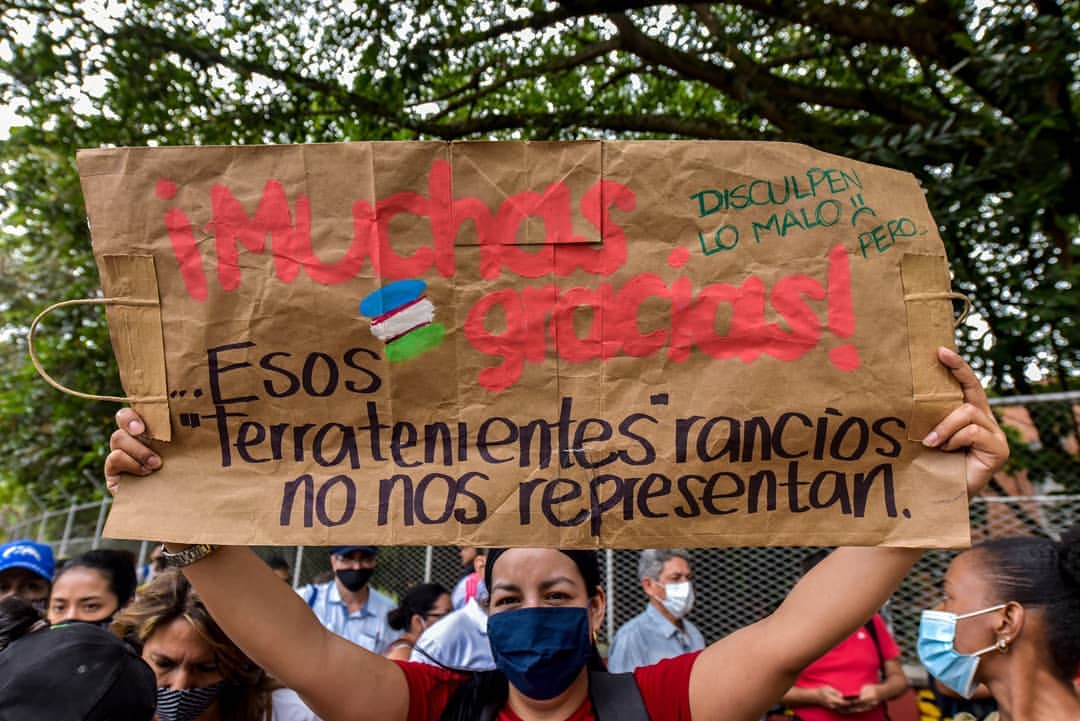 ¡Muchas
gracias!
DISCULPEN
LO MALO
PERO..
...Esos
"Terratenientes" rancios
no nos representan.